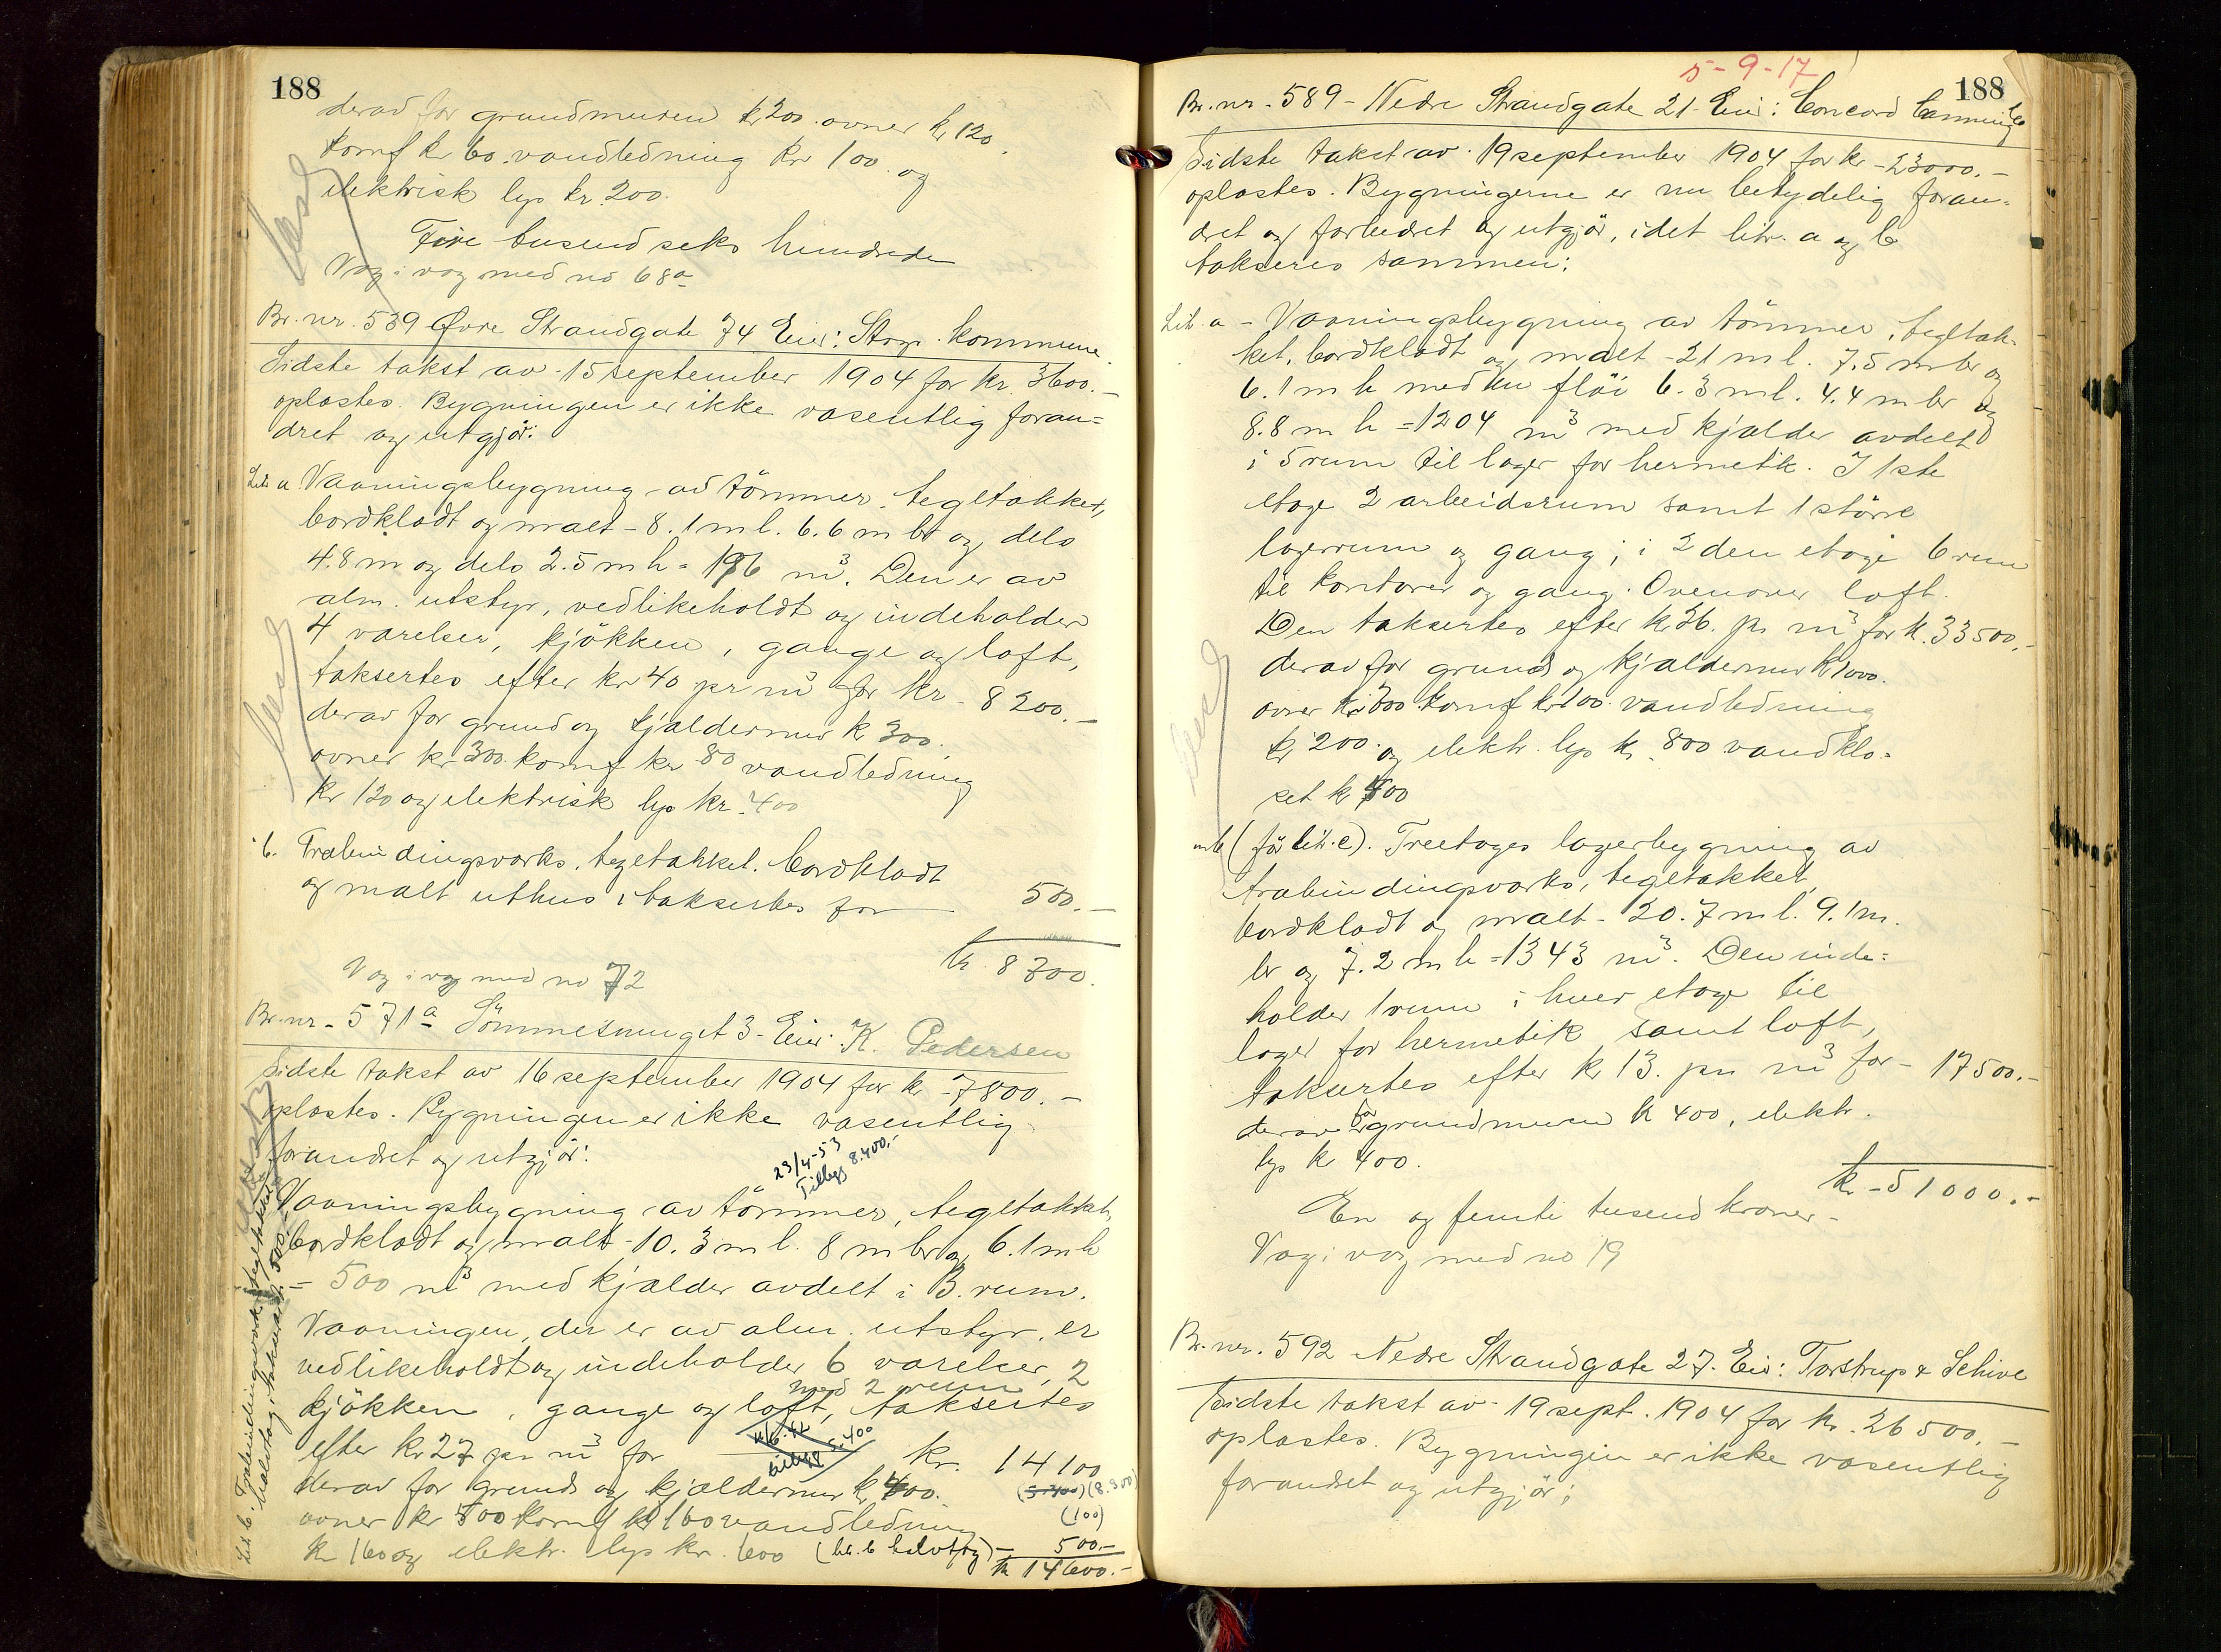 188
derav for grundmuren kr 200. ovner kr 120.
komf kr 60. vandledning kr 100. og
elektrisk lys kr. 200.
Fire tusend seks hundrede
Væg i væg med no 68a
Br. nr. 539 Øvre Strandgate 74 Eier: Stvgr. kommune.
Sidste takst av 15 september 1904 for kr. 3600.-
oplæstes. Bygningen er ikke væsentlig foran=
dret og utgjør:
Litr a Vaaningsbygning av tömmer, tegltækket,
bordklædt og malt - 8.1 m l. 6.6 m br og dels
4.8 m og dels 2.5 m h = 196 m³. Den er av
alm. utstyr, vedlikeholdt og indeholder
4 værelser, kjökken, gange og loft,
taksertes efter kr 40 pr m³ for kr - 8200.-
derav for grund og kjældermur kr 300.
ovner kr 300. komf kr 80 vandledning
kr 120 og elektrisk lys kr. 400
" b. Træbindingsværks, tegltækket, bordklædt
og malt uthus, taksertes for 500.-
kr. 8700.
Væg i væg med no 72
Br. nr. 571a Sömmesmuget 3 - Eier: K. Pedersen
Sidste takst av 16 september 1904 for kr - 7800.-
oplæstes. Bygningen er ikke væsentlig
forandret og utgjør:
23/4-53
Tillegg 8.400.-
Vaaningsbygning av tömmer, tegltækket,
bordklædt og malt - 10.3 m l. 8 m br og 6.1 m h
= 500 m³ med kjælder avdelt i 3 rum.
Vaaningen, der er av alm. utstyr, er
vedlikeholdt og indeholder 6 værelser, 2
med 2 rum
kjökken, gange og loft, taksertes
efter kr 27 pr m³ for kr. 14100
5.400
tillegg
derav for grund og kjældermur kr 400. (8.300)
ovner kr 500 komf kr 160 vandledning (100)
kr 160 og elektr. lys kr. 600 (litr. b halvtag) - 500.-
kr 14600.-
Litr b. Træbindingsværk, tegltækket
halvtag, takseres 500.-
5-9-17
188
Br. nr. 589 - Nedre Strandgate 21 - Eier: Concord Canning Co
Sidste takst av 19 september 1904 for kr - 23000.-
oplæstes. Bygningerne er nu betydelig foran=
dret og forbedret og utgjør, idet litr. a og b
takseres sammen:
Litr. a - Vaaningsbygning av tömmer, tegltæk-
ket, bordklædt og malt - 21 m l. 7.5 m br og
6.1 m h med en flöi 6.3 m l. 4.4 m br og
8.8 m h = 1204 m³ med kjælder avdelt
i 5 rum til lager for hermetik. I 1ste
etage 2 arbeidsrum samt 1 större
lagerrum og gang; i 2den etage 6 rum
til kontorer og gang. Ovenover loft.
Den taksertes efter kr 26. pr m³ for kr. 33500.-
derav for grund og kjældermur kr 1000.
ovner kr 700 komf kr 100 vandledning
kr 200. og elektr. lys kr. 800 vandklo=
set kr 400
(för litr. c). Treetages lagerbygning av
træbindingsværks, tegltækket,
bordklædt og malt - 20.7 m l. 9.1 m.
br og 7.2 m h = 1343 m³. Den inde=
holder 1 rum i hver etage til
lager for hermetik samt loft,
taksertes efter kr 13. pr m³ for - 17500.-
derav for grundmuren kr 400, elektr.
lys kr 400.
kr - 51000.-
En og femti tusend kroner -
Væg i væg med no 19
Br. nr. 592 Nedre Strandgate 27. Eier: Tastrup & Schive
Sidste takst av 19 sept. 1904 for kr. 26500.-
oplæstes. Bygningen er ikke væsentlig
forandret og utgjør;